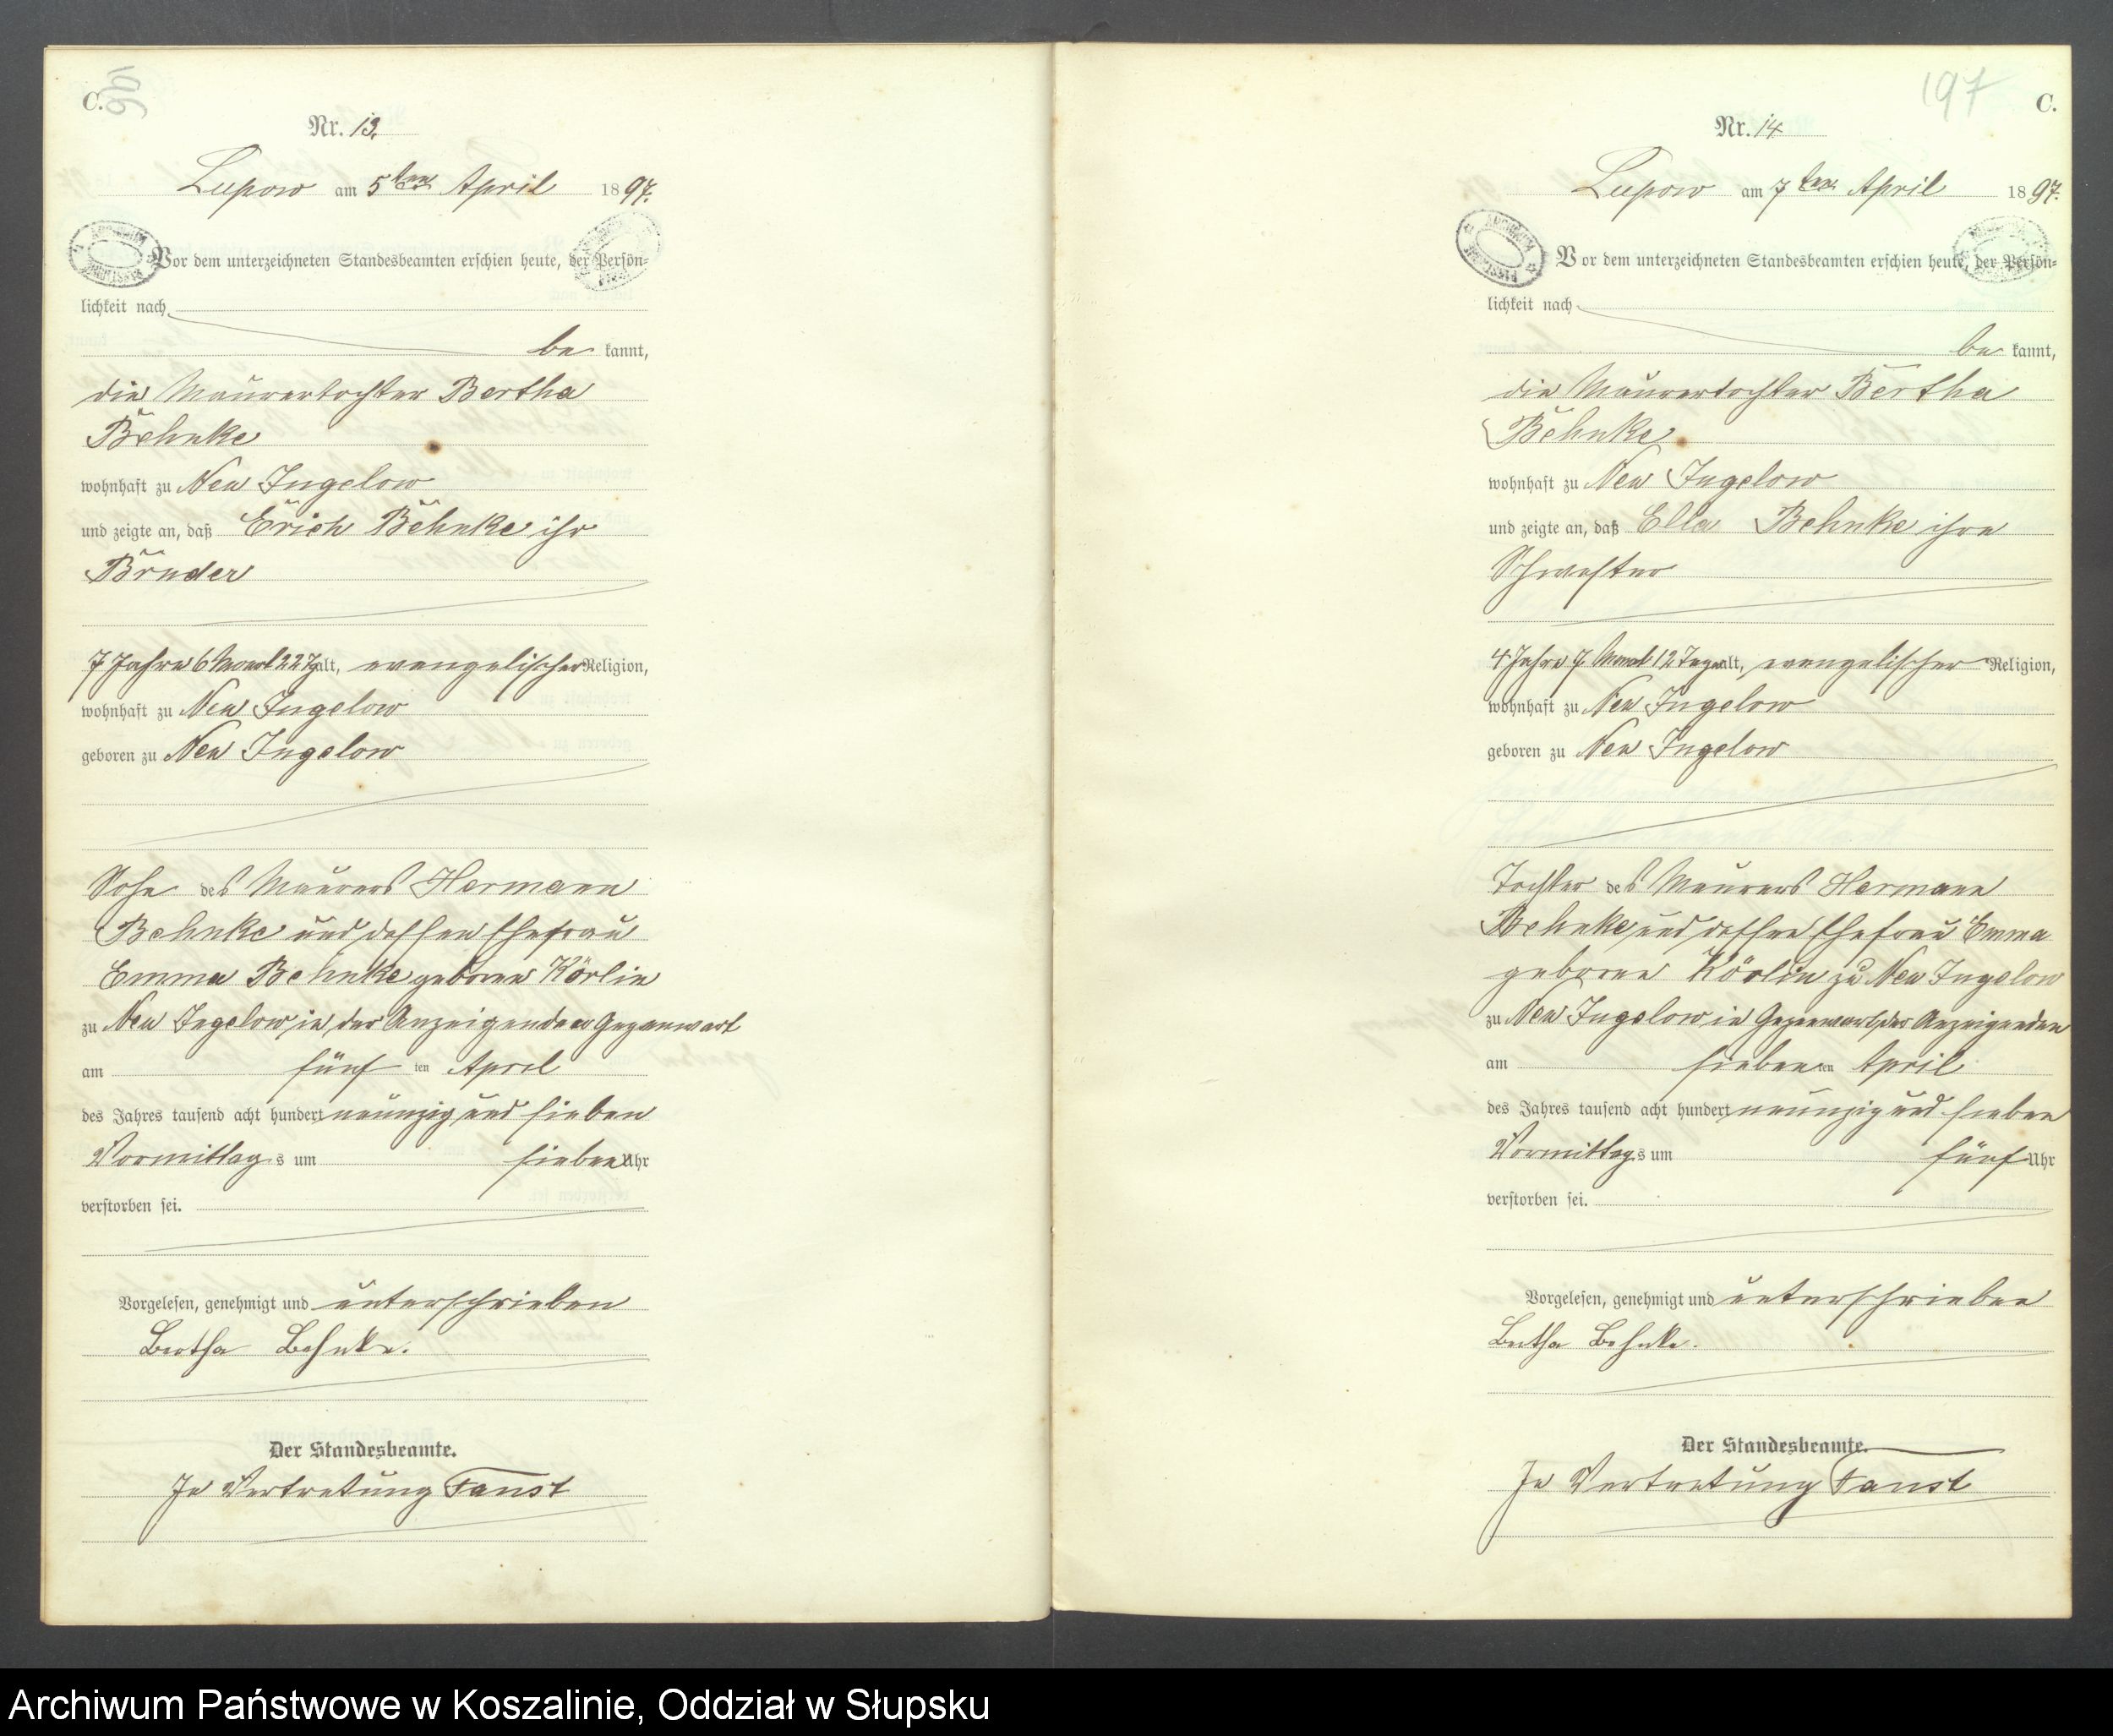 C.
196
Nr. 13.
Lupow am 5ten April 1897.
Vor dem unterzeichneten Standesbeamten erschien heute, der Persön-
lichkeit nach
be kannt,
die Maurertochter Bertha
Behnke
wohnhaft zu Neu Jugelow
und zeigte an, daß Erich Behnke ihr
Bruder
7 Jahre 6 Monat 22 Tg alt, evangelischer Religion,
wohnhaft zu Neu Jugelow
geboren zu Neu Jugelow
Sohn des Maurers Hermann
Behnke und dessen Ehefrau
Emma Behnke geboren Körlin
zu Neu Jugelow in der Anzeigenden Gegenwart
am fünf ten April
des Jahres tausend acht hundert neunzig und sieben
Vormittags um sieben Uhr
verstorben sei.
Vorgelesen, genehmigt und unterschrieben
Bertha Behnke.
Der Standesbeamte.
In Vertretung Faust
197
C.
Nr. 14
Lupow am 7ten April 1897.
Vor dem unterzeichneten Standesbeamten erschien heute, der Persön-
lichkeit nach
be kannt,
die Maurertochter Bertha
Behnke
wohnhaft zu Neu Jugelow
und zeigte an, daß Ella Behnke ihre
Schwester
4 Jahre 7 Monat 12 Tage alt, evangelischer Religion,
wohnhaft zu Neu Jugelow
geboren zu Neu Jugelow
Tochter des Maurers Hermann
Behnke und dessen Ehefrau Emma
geboren Körlin zu Neu Jugelow
zu Neu Jugelow in Gegenwart der Anzeigenden
am sieben ten April
des Jahres tausend acht hundert neunzig und sieben
Vormittags um fünf Uhr
verstorben sei.
Vorgelesen, genehmigt und unterschrieben
Bertha Behnke.
Der Standesbeamte.
In Vertretung Faust
Archiwum Państwowe w Koszalinie, Oddział w Słupsku